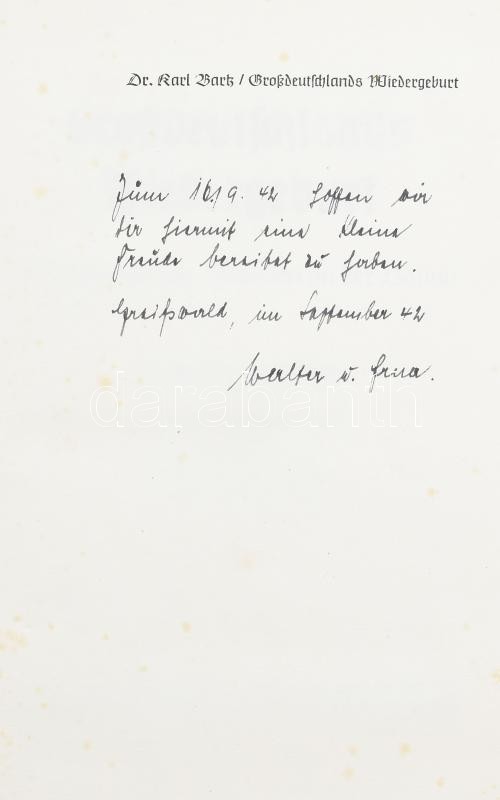 Dr. Karl Bartz / Großdeutschlands Wiedergeburt
Zum 16.9.42 hoffen wir
dir hiermit eine kleine
Freude bereitet zu haben.
Greifswald, im September 42
Walter u. Erna.
darabanth